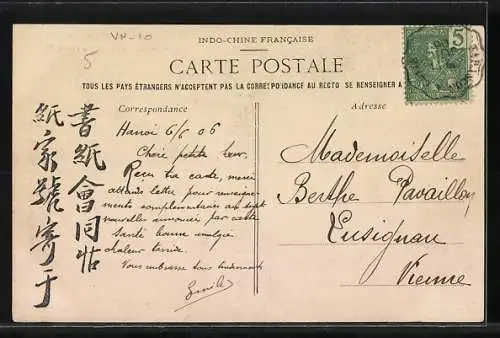 VN-10
5
INDO-CHINE FRANÇAISE
CARTE POSTALE
TOUS LES PAYS ÉTRANGERS N'ACCEPTENT PAS LA CORRESPONDANCE AU RECTO SE RENSEIGNER A
Correspondance
Adresse
5
Hanoi 6/5 06
Chère petite
Reçu ta carte, merci
attends lettre pour renseigne-
ments complémentaires au sujet
nouvelles annoncées par carte
Santé bonne malgré
chaleur torride.
Vous embrasse tous tendrement
Emile
Mademoiselle
Berthe Pavaillon
Lusignan
Vienne
書紙會同帖
紙家號寄于